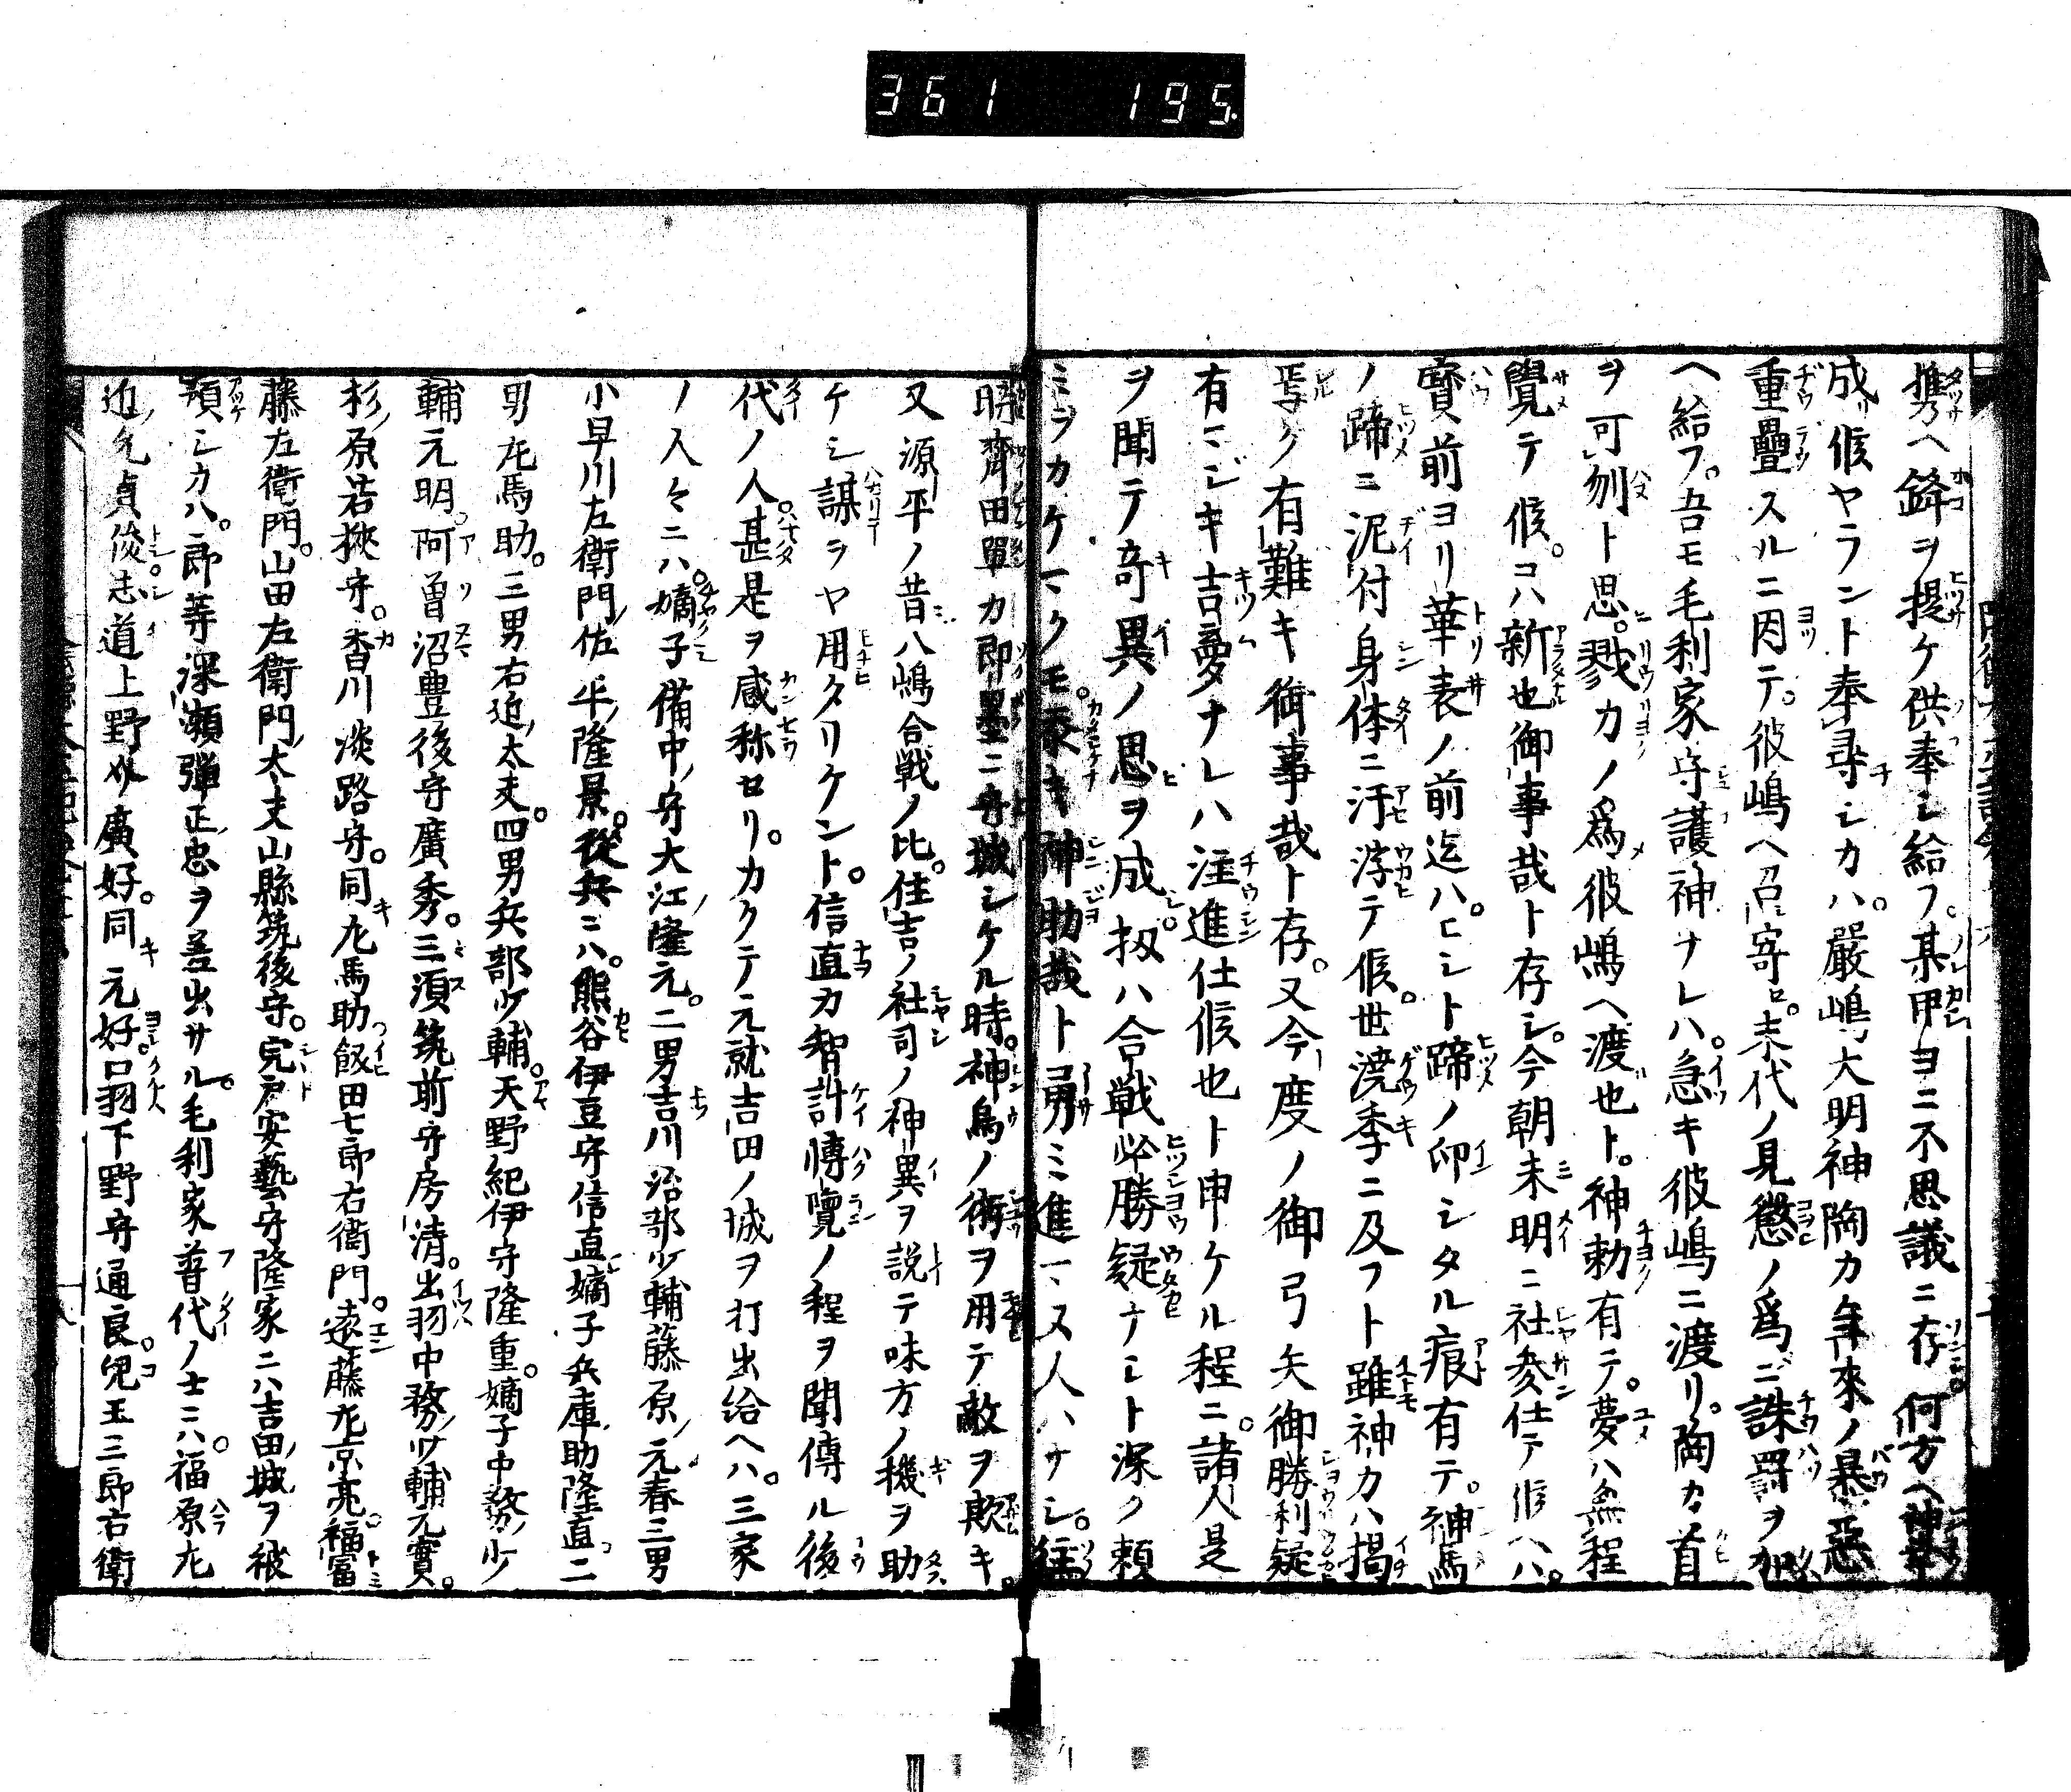 361 195
携ヘ鋒ヲ提ケ供奉シ給フ。某甲ヨニ不思議ニ存何方ヘ神幸
成リ候ヤラント奉尋シカハ。嚴嶋大明神陶カ年來ノ暴惡
重疊スルニ因テ。彼嶋ヘ召寄セ。末代ノ見懲ノ爲ニ誅罰ヲ加
ヘ給フ。吾モ毛利家守護神ナレハ。急キ彼嶋ニ渡リ。陶カ首
ヲ可刎ト思。戮カノ爲彼嶋ヘ渡也ト。神勅有テ。夢ハ無程
覺テ候。コハ新也御事哉ト存シ。今朝未明ニ社參仕テ候ヘハ。
寳前ヨリ華表ノ前迄ハ。ヒシト蹄ノ印シタル痕有テ。神馬
ノ蹄ニ泥付身体ニ汗浮テ候。世澆季ニ及フト雖神力ハ掲
焉ク有難キ御事哉ト存。又今度ノ御弓矢御勝利疑
有マジキ吉夢ナレハ注進仕候也ト申ケル程ニ。諸人是
ヲ聞テ奇異ノ思ヲ成シ。扨ハ合戦必勝疑ナシト深ク頼
ミヲカケマクモ。忝キ神助哉ト勇ミ進マヌ人ハナシ。
齊田單カ即墨ニ守城シケル時。神鳥ノ術ヲ用テ敵ヲ欺キ。
又源平ノ昔八嶋合戦ノ比。住吉ノ社司ノ神異ヲ説テ味方ノ機ヲ助
ケシ謀ヲヤ用タリケント。信直カ智計博覽ノ程ヲ聞傳ル後
代ノ人。甚是ヲ感称セリ。カクテ元就吉田ノ城ヲ打出給ヘハ。三家
ノ人々ニハ。嫡子備中ノ守大江ノ隆元。二男吉川治部少輔藤原ノ元春三男
小早川左衛門ノ佐平ノ隆景。從兵ニハ。熊谷伊豆守信直嫡子兵庫助隆直二
男左馬助。三男右近ノ太夫。四男兵部少輔。天野紀伊守隆重。嫡子中務ノ少
輔元明。阿曽沼豊後守廣秀。三須筑前守房清。出羽中務ノ少輔元實。
杉ノ原若狹守。香川淡路守。同左馬助飯田七郎右衛門。遠藤左京亮。福冨
藤左衛門。山田左衛門ノ太夫山縣筑後守。宍戸安藝守隆家ニハ吉田ノ城ヲ被
預シカハ。郎等深瀬彈正ノ忠ヲ差出サル。毛利家普代ノ士ニハ。福原左
近ノ允貞俊。志道上野介廣好。同元好。口羽下野守通良。兒玉三郎右衛